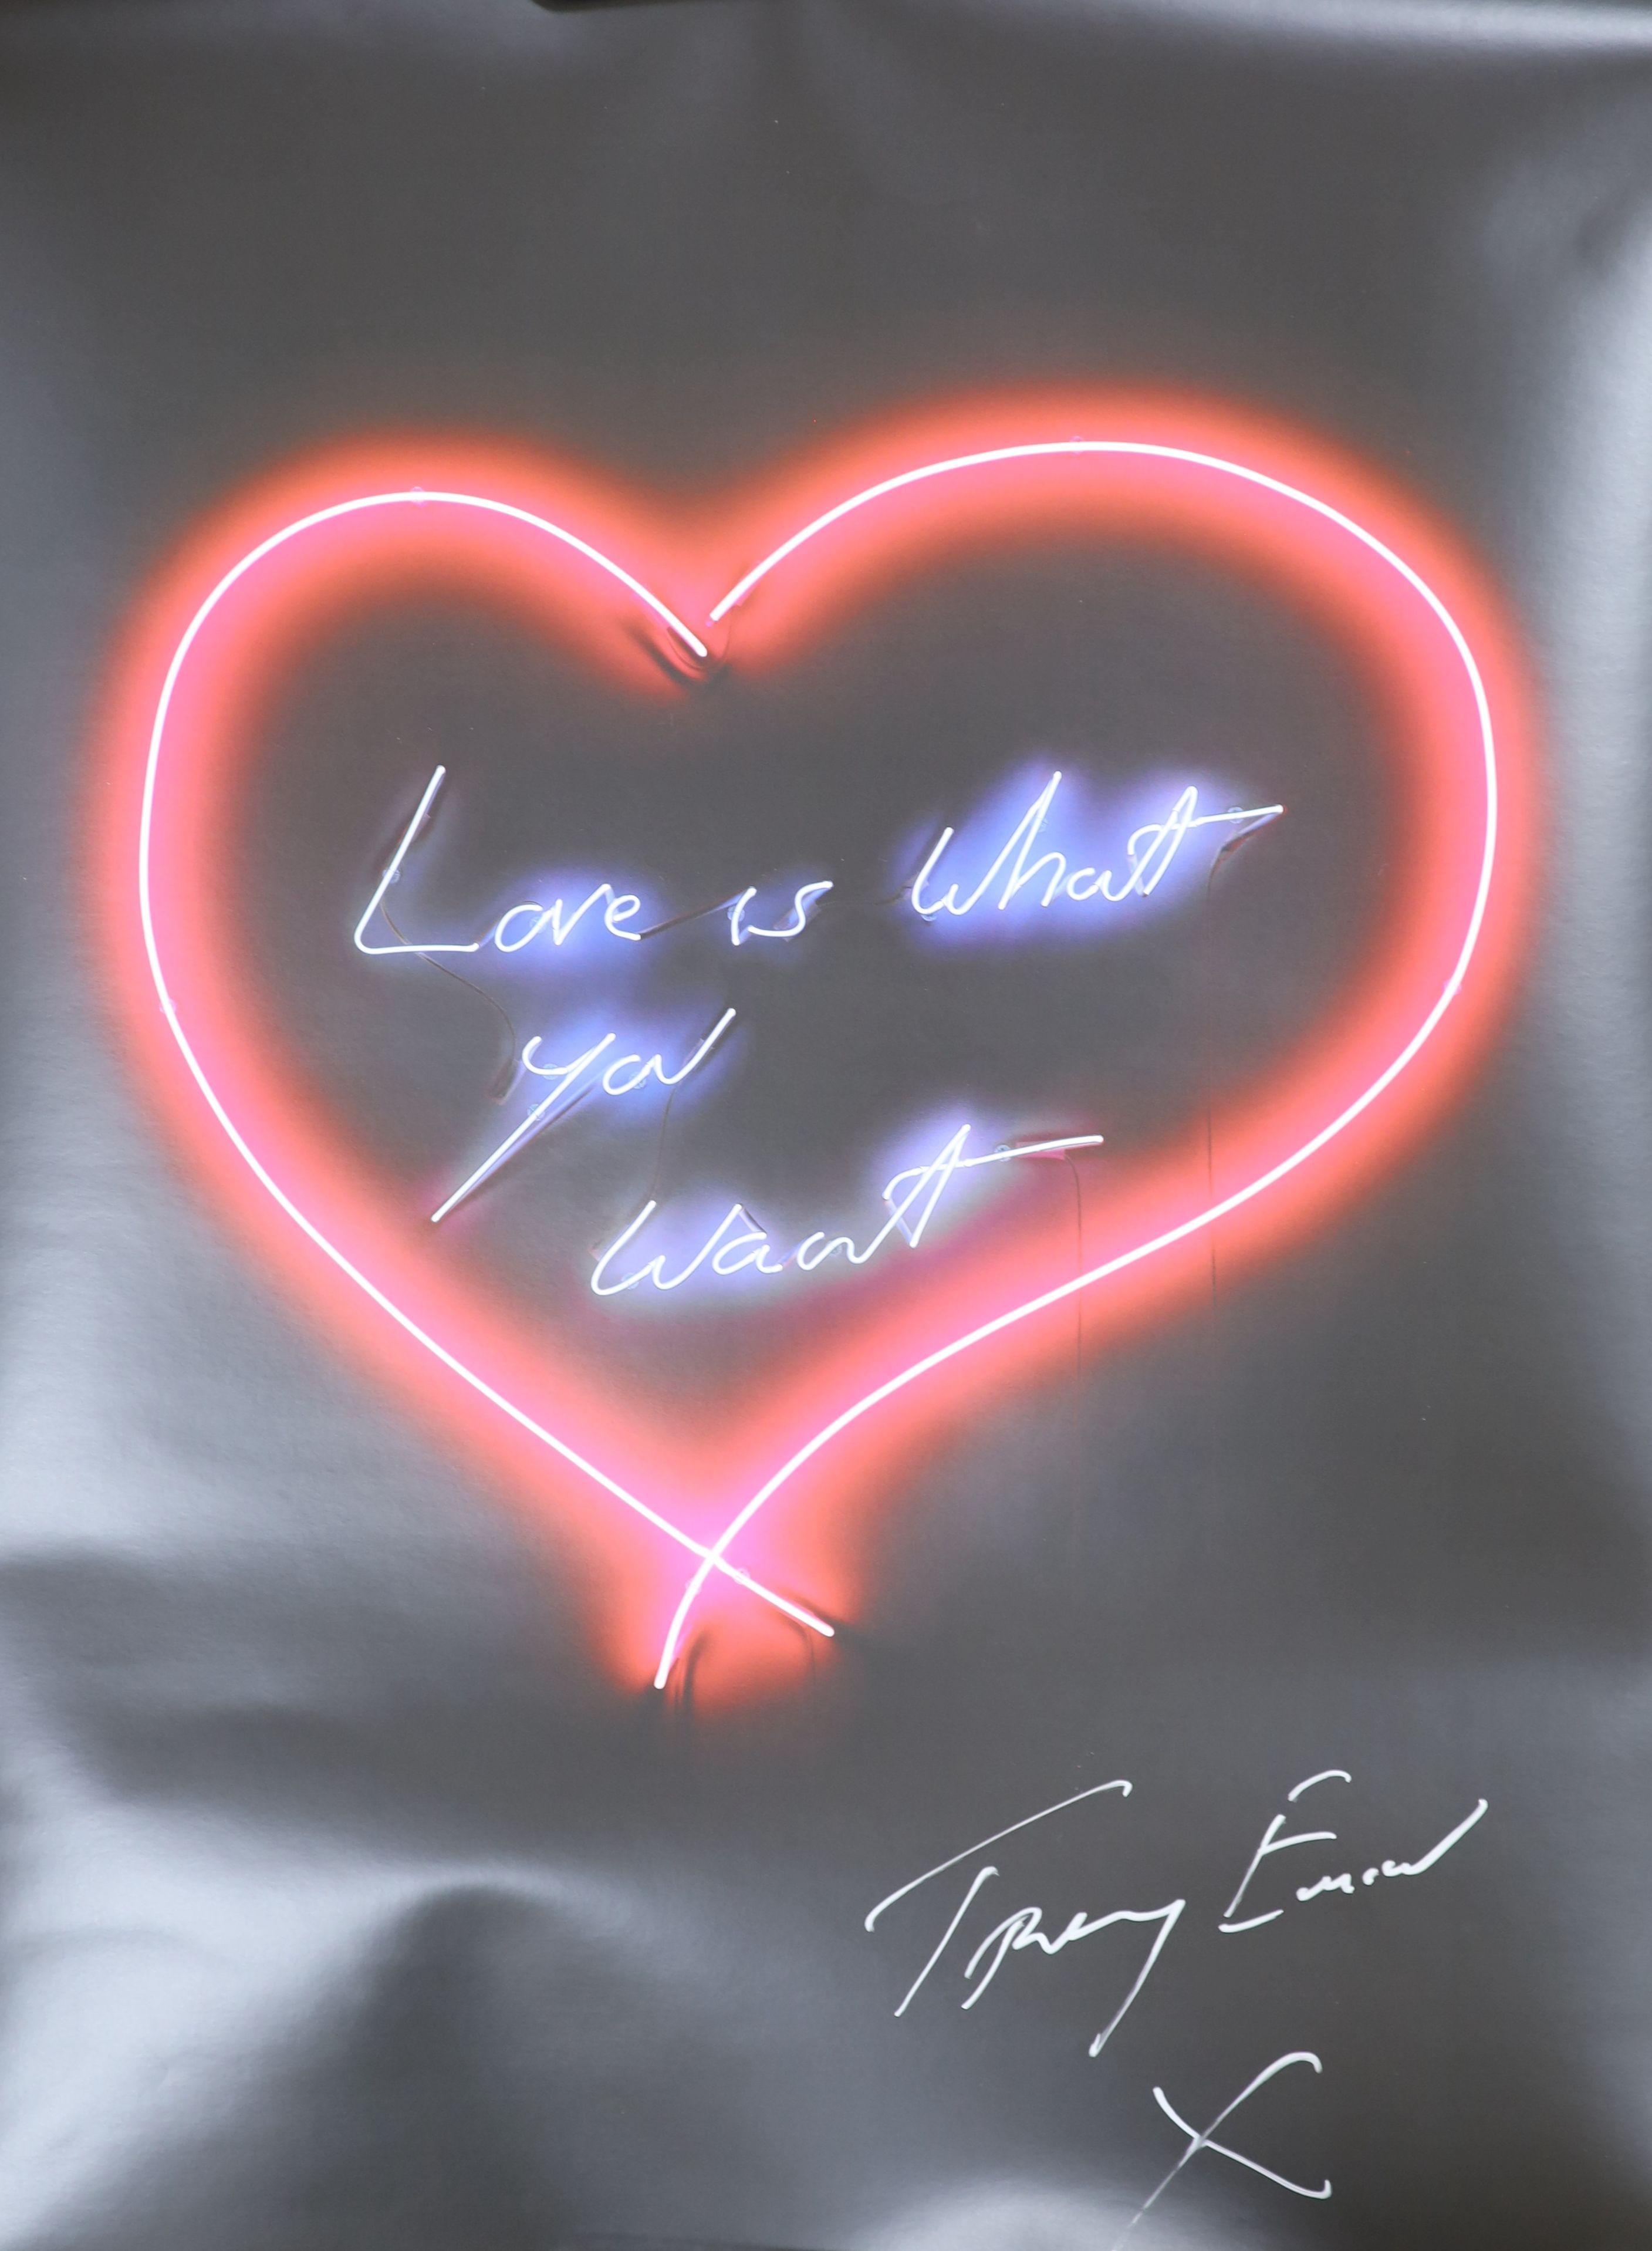 Love is What
you
Want
Tracey Emin
X